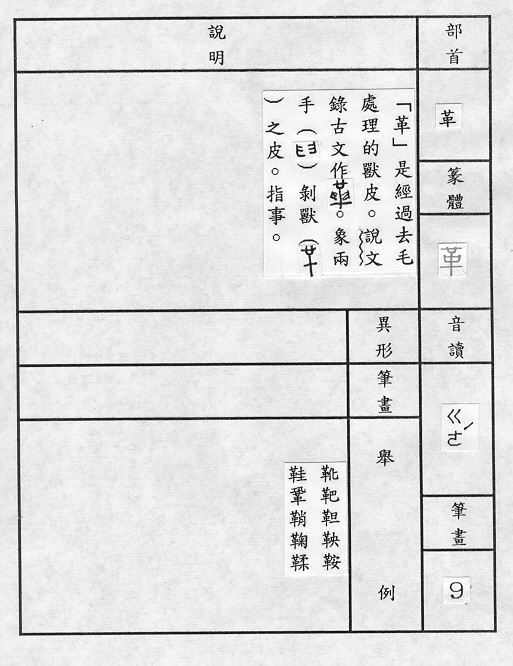 部首
革
篆體
革
音讀
ㄍㄜˊ
筆畫
9
說明
「革」是經過去毛
處理的獸皮。說文
錄古文作。象兩
手（）剝獸（
）之皮。指事。
異形
筆畫
舉例
靴靶靼鞅鞍
鞋鞏鞘鞠鞣